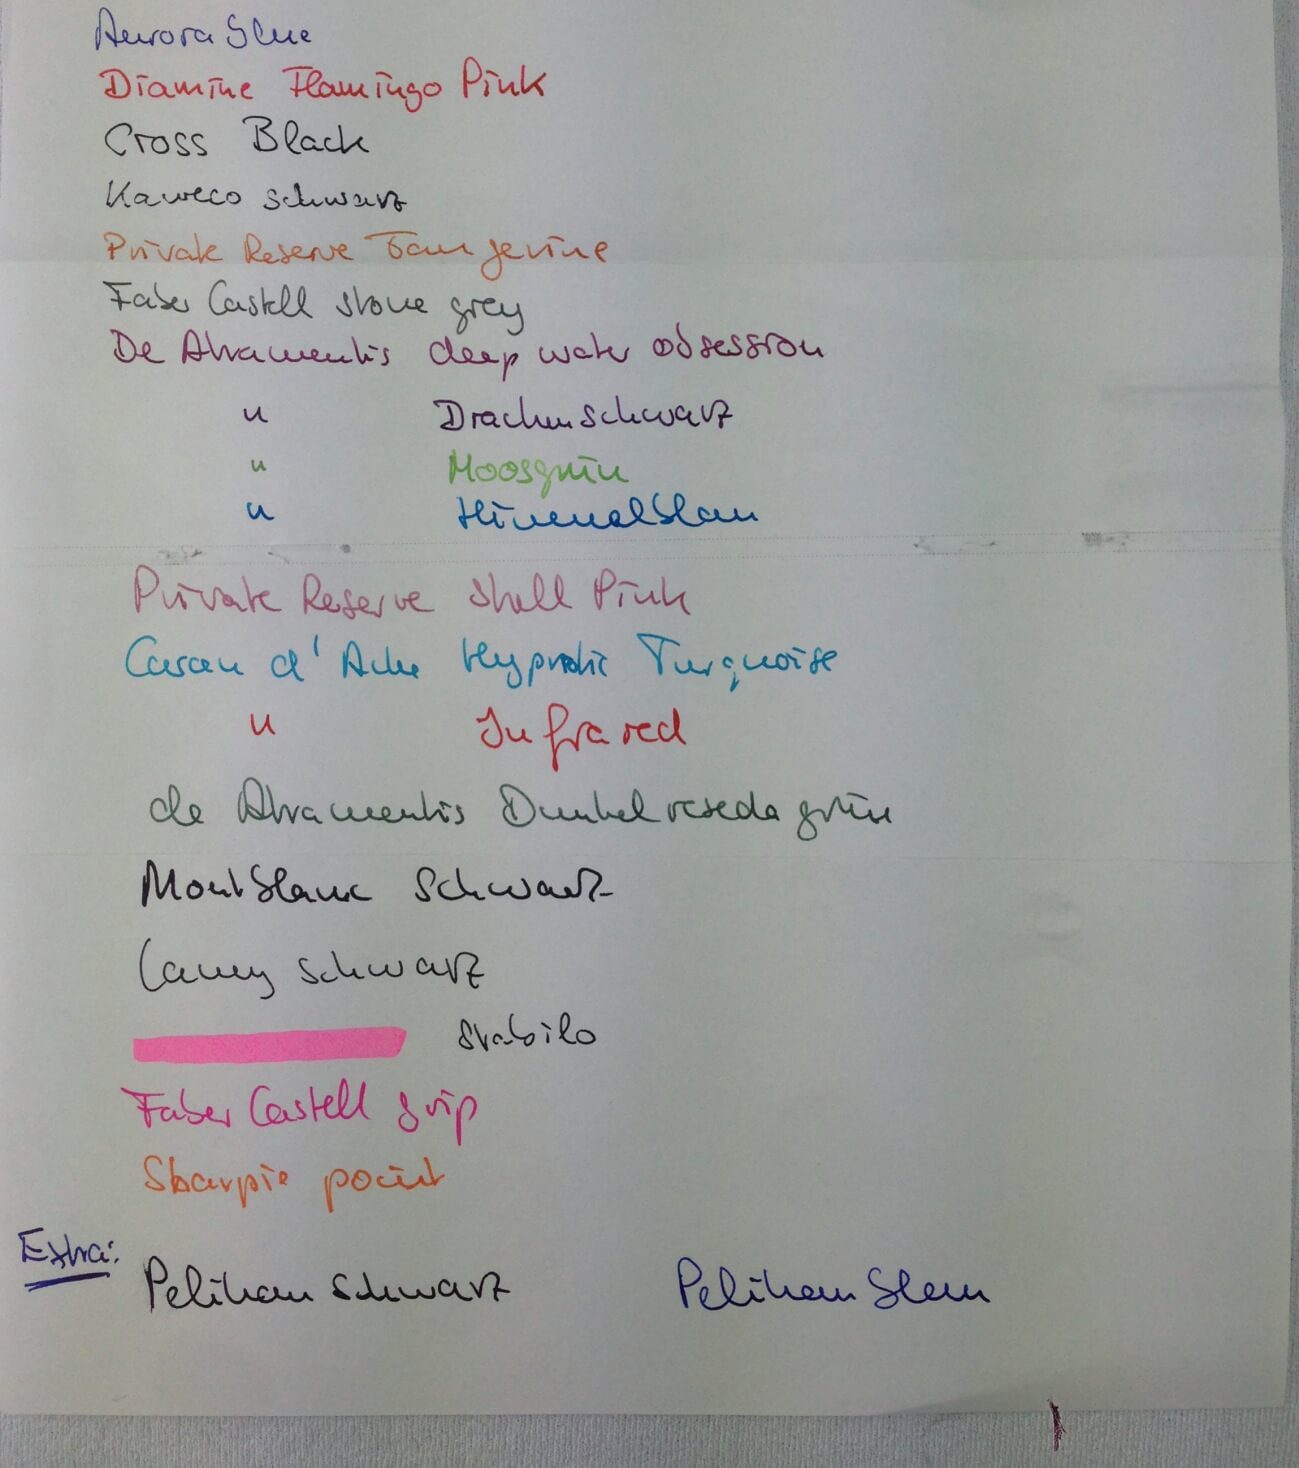 Aurora Blue
Diamine Flamingo Pink
Cross Black
Kaweco schwarz
Private Reserve Tangerine
Faber Castell stone grey
De Atramentis deep water obsession
" Drachenschwarz
" Moosgrün
" Himmelblau
Private Reserve Shell Pink
Caran d'Ache Hypnotic Turquoise
" Infrared
de Atramentis Dunkelresedagrün
Montblanc Schwarz
Lamy schwarz
Stabilo
Faber Castell grip
Sharpie point
Extra:
Pelikan Schwarz Pelikan Blau